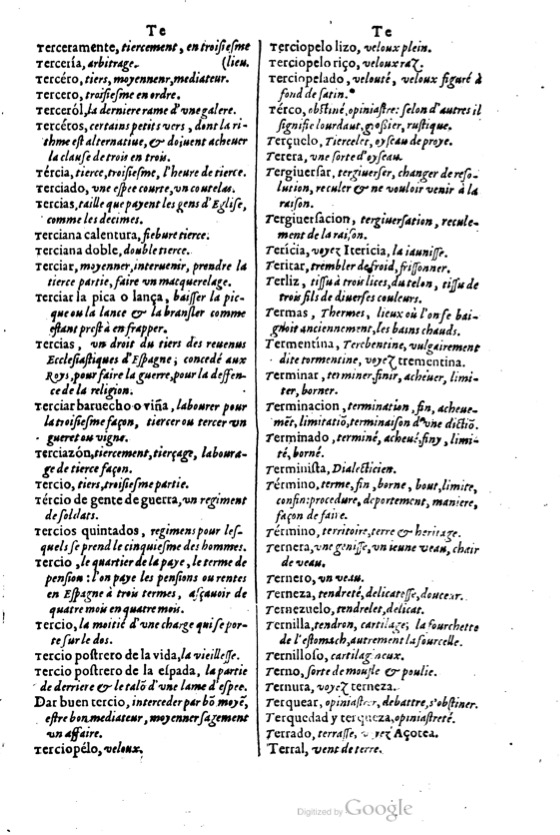 Te
Terceramente, tiercement, en troisiesme
Tercería, arbitrage. (lieu.
Tercéro, tiers, moyennenr, mediateur.
Tercero, troisiesme en ordre.
Terceról, la derniere rame d'vne galere.
Tercéros, certains petits vers, dont la ri-
thme est alternatiue, & doiuent acheuer
la clause de trois en trois.
Tércia, tierce, troisiesme, l'heure de tierce.
Terciado, vne espee courte, vn coutelas.
Tercias, taille que payent les gens d'Eglise,
comme les decimes.
Terciana calentura, fiebure tierce.
Terciana doble, double tierce.
Terciar, moyenner, interuenir, prendre la
tierce partie, faire vn macquerelage.
Terciar la pica o lança, baisser la pic-
que ou la lance & la bransler comme
estant prest à en frapper.
Tercias, vn droit du tiers des reuenus
Ecclesiastiques d'Espagne; concedé aux
Roys, pour faire la guerre, pour la deffen-
ce de la religion.
Terciar baruecho o viña, labourer pour
la troisiesme façon, tiercer ou tercer vn
gueret ou vigne.
Terciazón, tiercement, tierçage, laboura-
ge de tierce façon.
Tercio, tiers, troisiesme partie.
Tércio de gente de guerra, vn regiment
de soldats.
Tercios quintados, regimens pour les-
quels se prend le cinquiesme des hommes.
Tercio, le quartier de la paye, le terme de
pension: l'on paye les pensions ou rentes
en Espagne à trois termes, asçauoir de
quatre mois en quatre mois.
Tercio, la moitié d'vne charge qui se por-
te sur le dos.
Tercio postrero de la vida, la vieillesse.
Tercio postrero de la espada, la partie
de derriere & le talõ d'vne lame d'espee.
Dar buen tercio, interceder par bõ moyẽ,
estre bon mediateur, moyenner sagement
vn affaire.
Terciopélo, veloux.
Te
Terciopelo lizo, veloux plein.
Terciopelo riço, veloux raz.
Terciopelado, velouté, veloux figuré à
fond de satin.
Térco, obstiné, opiniastre: selon d'autres il
signifie lourdaut, grossier, rustique.
Terçuelo, Tiercelet, oyseau de proye.
Terera, vne sorte d'oyseau.
Tergiuersar, tergiuerser, changer de reso-
lution, reculer & ne vouloir venir à la
raison.
Tergiuersacion, tergiuersation, recule-
ment de la raison.
Tericia, voyez Itericia, la iaunisse.
Teritar, trembler de froid, frissonner.
Terliz, tissu à trois lices, du telon, tissu de
trois fils de diuerses couleurs.
Termas, Thermes, lieux où l'on se bai-
gnoit anciennement, les bains chauds.
Termentina, Terebentine, vulgairement
dite tormentine, voyez trementina.
Terminar, terminer, finir, acheuer, limi-
ter, borner.
Terminacion, termination, fin, acheue-
mẽt, limitatiõ, terminaison d'vne dictiõ.
Terminado, terminé, acheué, finy, limi-
té, borné.
Terminista, Dialecticien.
Término, terme, fin, borne, bout, limite,
confin: procedure, deportement, maniere,
façon de faire.
Término, territoire, terre & heritage.
Ternera, vne genisse, vn ieune veau, chair
de veau.
Ternero, vn veau.
Terneza, tendreté, delicatesse, douceur.
Ternezuelo, tendrelet, delicat.
Ternilla, tendron, cartilage; la fourchette
de l'estomach, autrement la fourcelle.
Ternilloso, cartilagineux.
Terno, sorte de moufle & poulie.
Ternura, voyez terneza.
Terquear, opiniastrer, debattre, s'obstiner.
Terquedad y terqueza, opiniastreté.
Terrado, terrasse, voyez Açotea.
Terral, vent de terre.
Digitized by Google